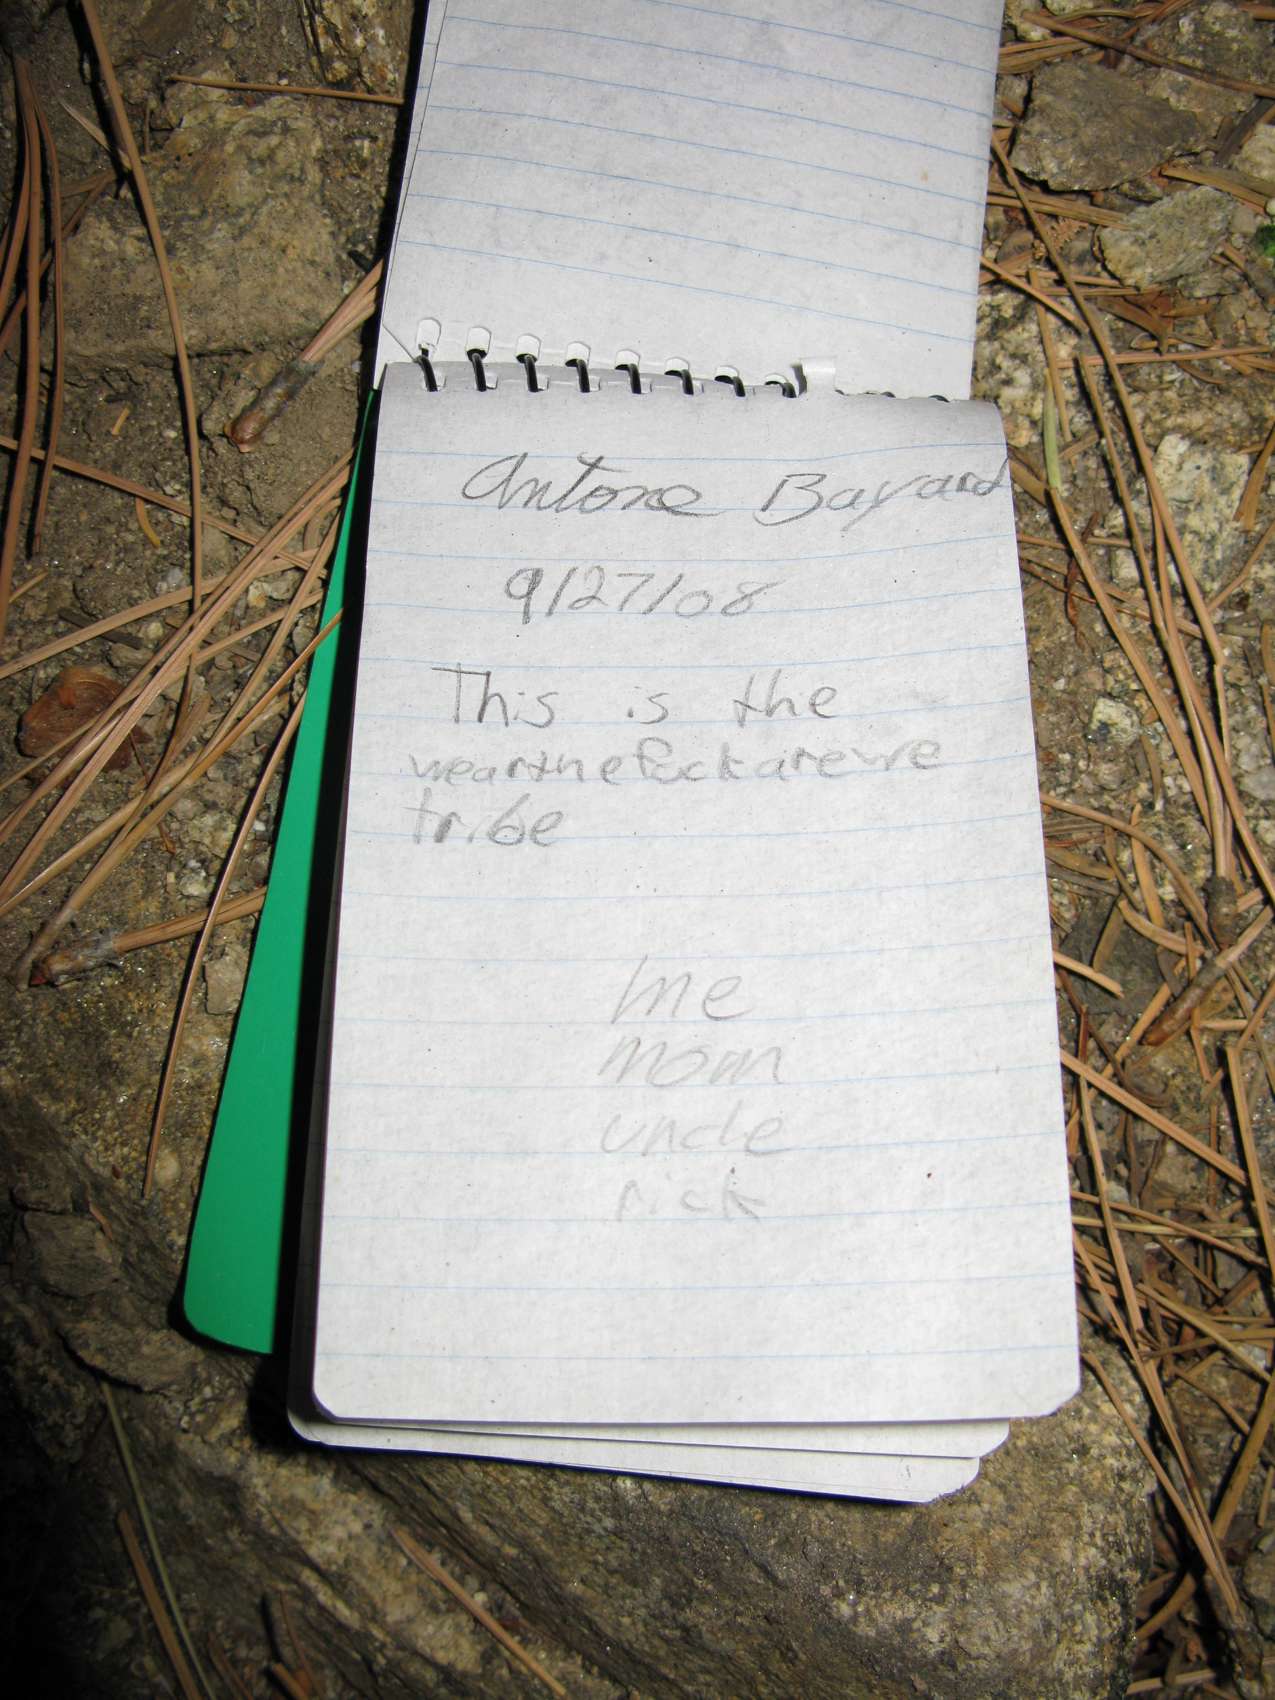 Antone Bayard
9/27/08
This is the
wearthefuckarewe
tribe
me
mom
uncle
rick